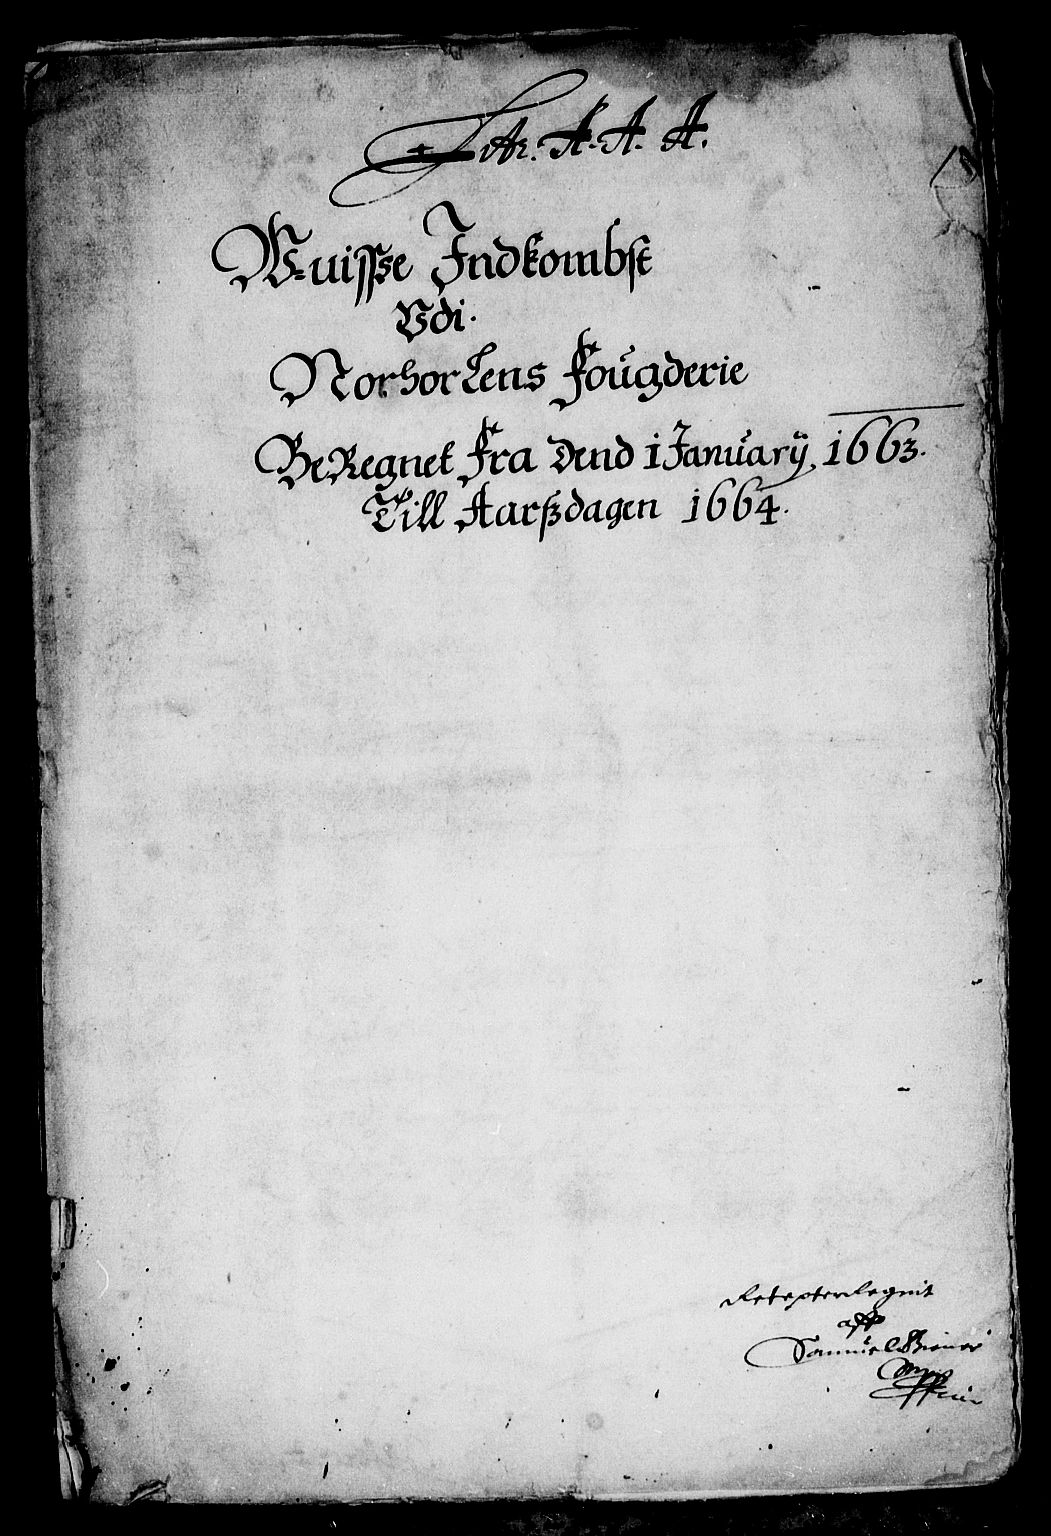 Litr. A. A. A.
W-uisse Indkombst
Vdi.
Norhorlens Fougderie
BeRegnet Fra Dend 1 January, 1663.
Till Aarsdagen 1664.
aff
Samuel